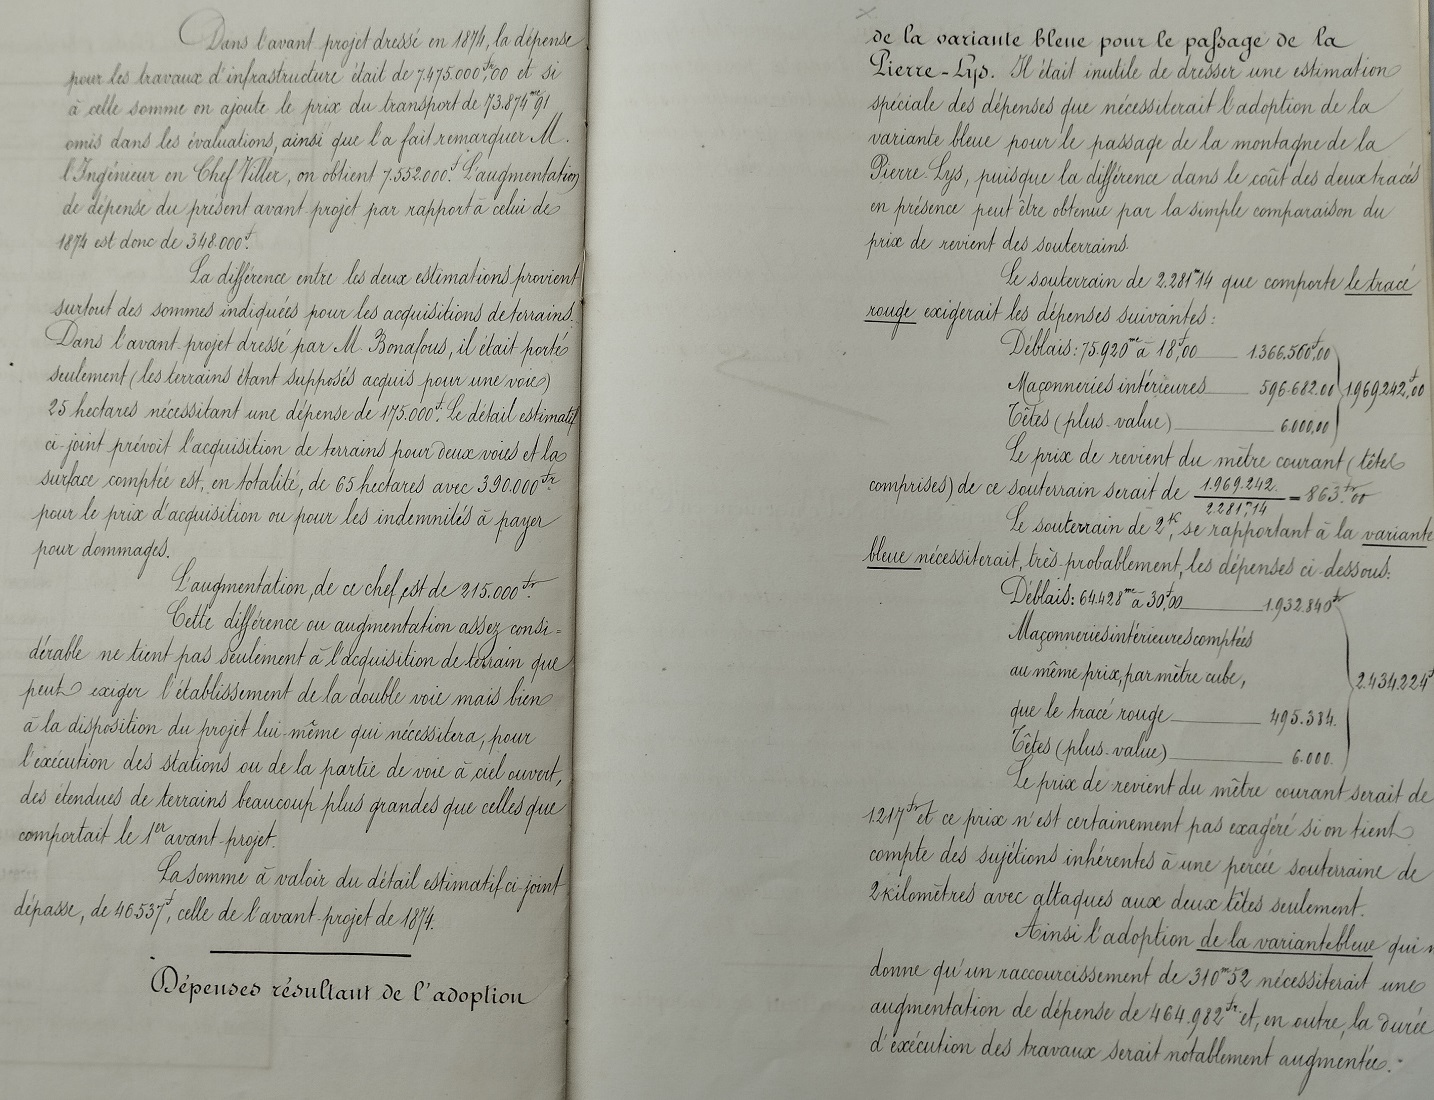 Dans l'avant-projet dressé en 1874, la dépense
pour les travaux d'infrastructure était de 7.475.000fr,00 et si
à celle somme on ajoute le prix du transport de 73.874mc91
omis dans les évaluations, ainsi que l'a fait remarquer M.
l'Ingénieur en Chef Viller, on obtient 7.552.000f. L'augmentation
de dépense du présent avant-projet par rapport à celui de
1874 est donc de 348.000f.
La différence entre les deux estimations provient
surtout des sommes indiquées pour les acquisitions de terrains.
Dans l'avant-projet dressé par M. Bonafous, il était porté
seulement (les terrains étant supposés acquis pour une voie)
25 hectares nécessitant une dépense de 175.000f. Le détail estimatif
ci-joint prévoit l'acquisition de terrains pour deux voies et la
surface comptée est, en totalité, de 65 hectares avec 390.000fr
pour le prix d'acquisition ou pour les indemnités à payer
pour dommages.
L'augmentation, de ce chef, est de 215.000fr.
Cette différence ou augmentation assez consi=
dérable ne tient pas seulement à l'acquisition de terrain que
peut exiger l'établissement de la double voie mais bien
à la disposition du projet lui-même qui nécessitera, pour
l'exécution des stations ou de la partie de voie à ciel ouvert,
des étendues de terrains beaucoup plus grandes que celles que
comportait le 1er avant-projet.
La somme à valoir du détail estimatif ci-joint
dépasse, de 46.537f, celle de l'avant-projet de 1874.
Dépenses résultant de l'adoption
de la variante bleue pour le passage de la
Pierre-Lys. Il était inutile de dresser une estimation
spéciale des dépenses que nécessiterait l'adoption de la
variante bleue pour le passage de la montagne de la
Pierre-Lys, puisque la différence dans le coût des deux tracés
en présence peut être obtenue par la simple comparaison du
prix de revient des souterrains.
Le souterrain de 2.281m14 que comporte le tracé
rouge exigerait les dépenses suivantes:
Déblais: 75.920mc à 18f,00 1.366.560f,00
Maçonneries intérieures 596.682.00 1.969.242f,00
Têtes (plus-value) 6.000,00
Le prix de revient du mètre courant (têtes
comprises) de ce souterrain serait de 1.969.242. / 2.281m,14 = 863fr,00
Le souterrain de 2k, se rapportant à la variante
bleue nécessiterait, très-probablement, les dépenses ci-dessous:
Déblais: 64.428mc à 30f,00 1.932.840fr
Maçonneries intérieures comptées
au même prix, par mètre cube, 2.434.224f
que le tracé rouge 495.384.
Têtes (plus-value) 6.000.
Le prix de revient du mètre courant serait de
1.217fr et ce prix n'est certainement pas exagéré si on tient
compte des sujétions inhérentes à une percée souterraine de
2 kilomètres avec attaques aux deux têtes seulement.
Ainsi l'adoption de la variante bleue qui
donne qu'un raccourcissement de 310m52 nécessiterait une
augmentation de dépense de 464.982fr. et, en outre, la durée
d'exécution des travaux serait notablement augmentée.